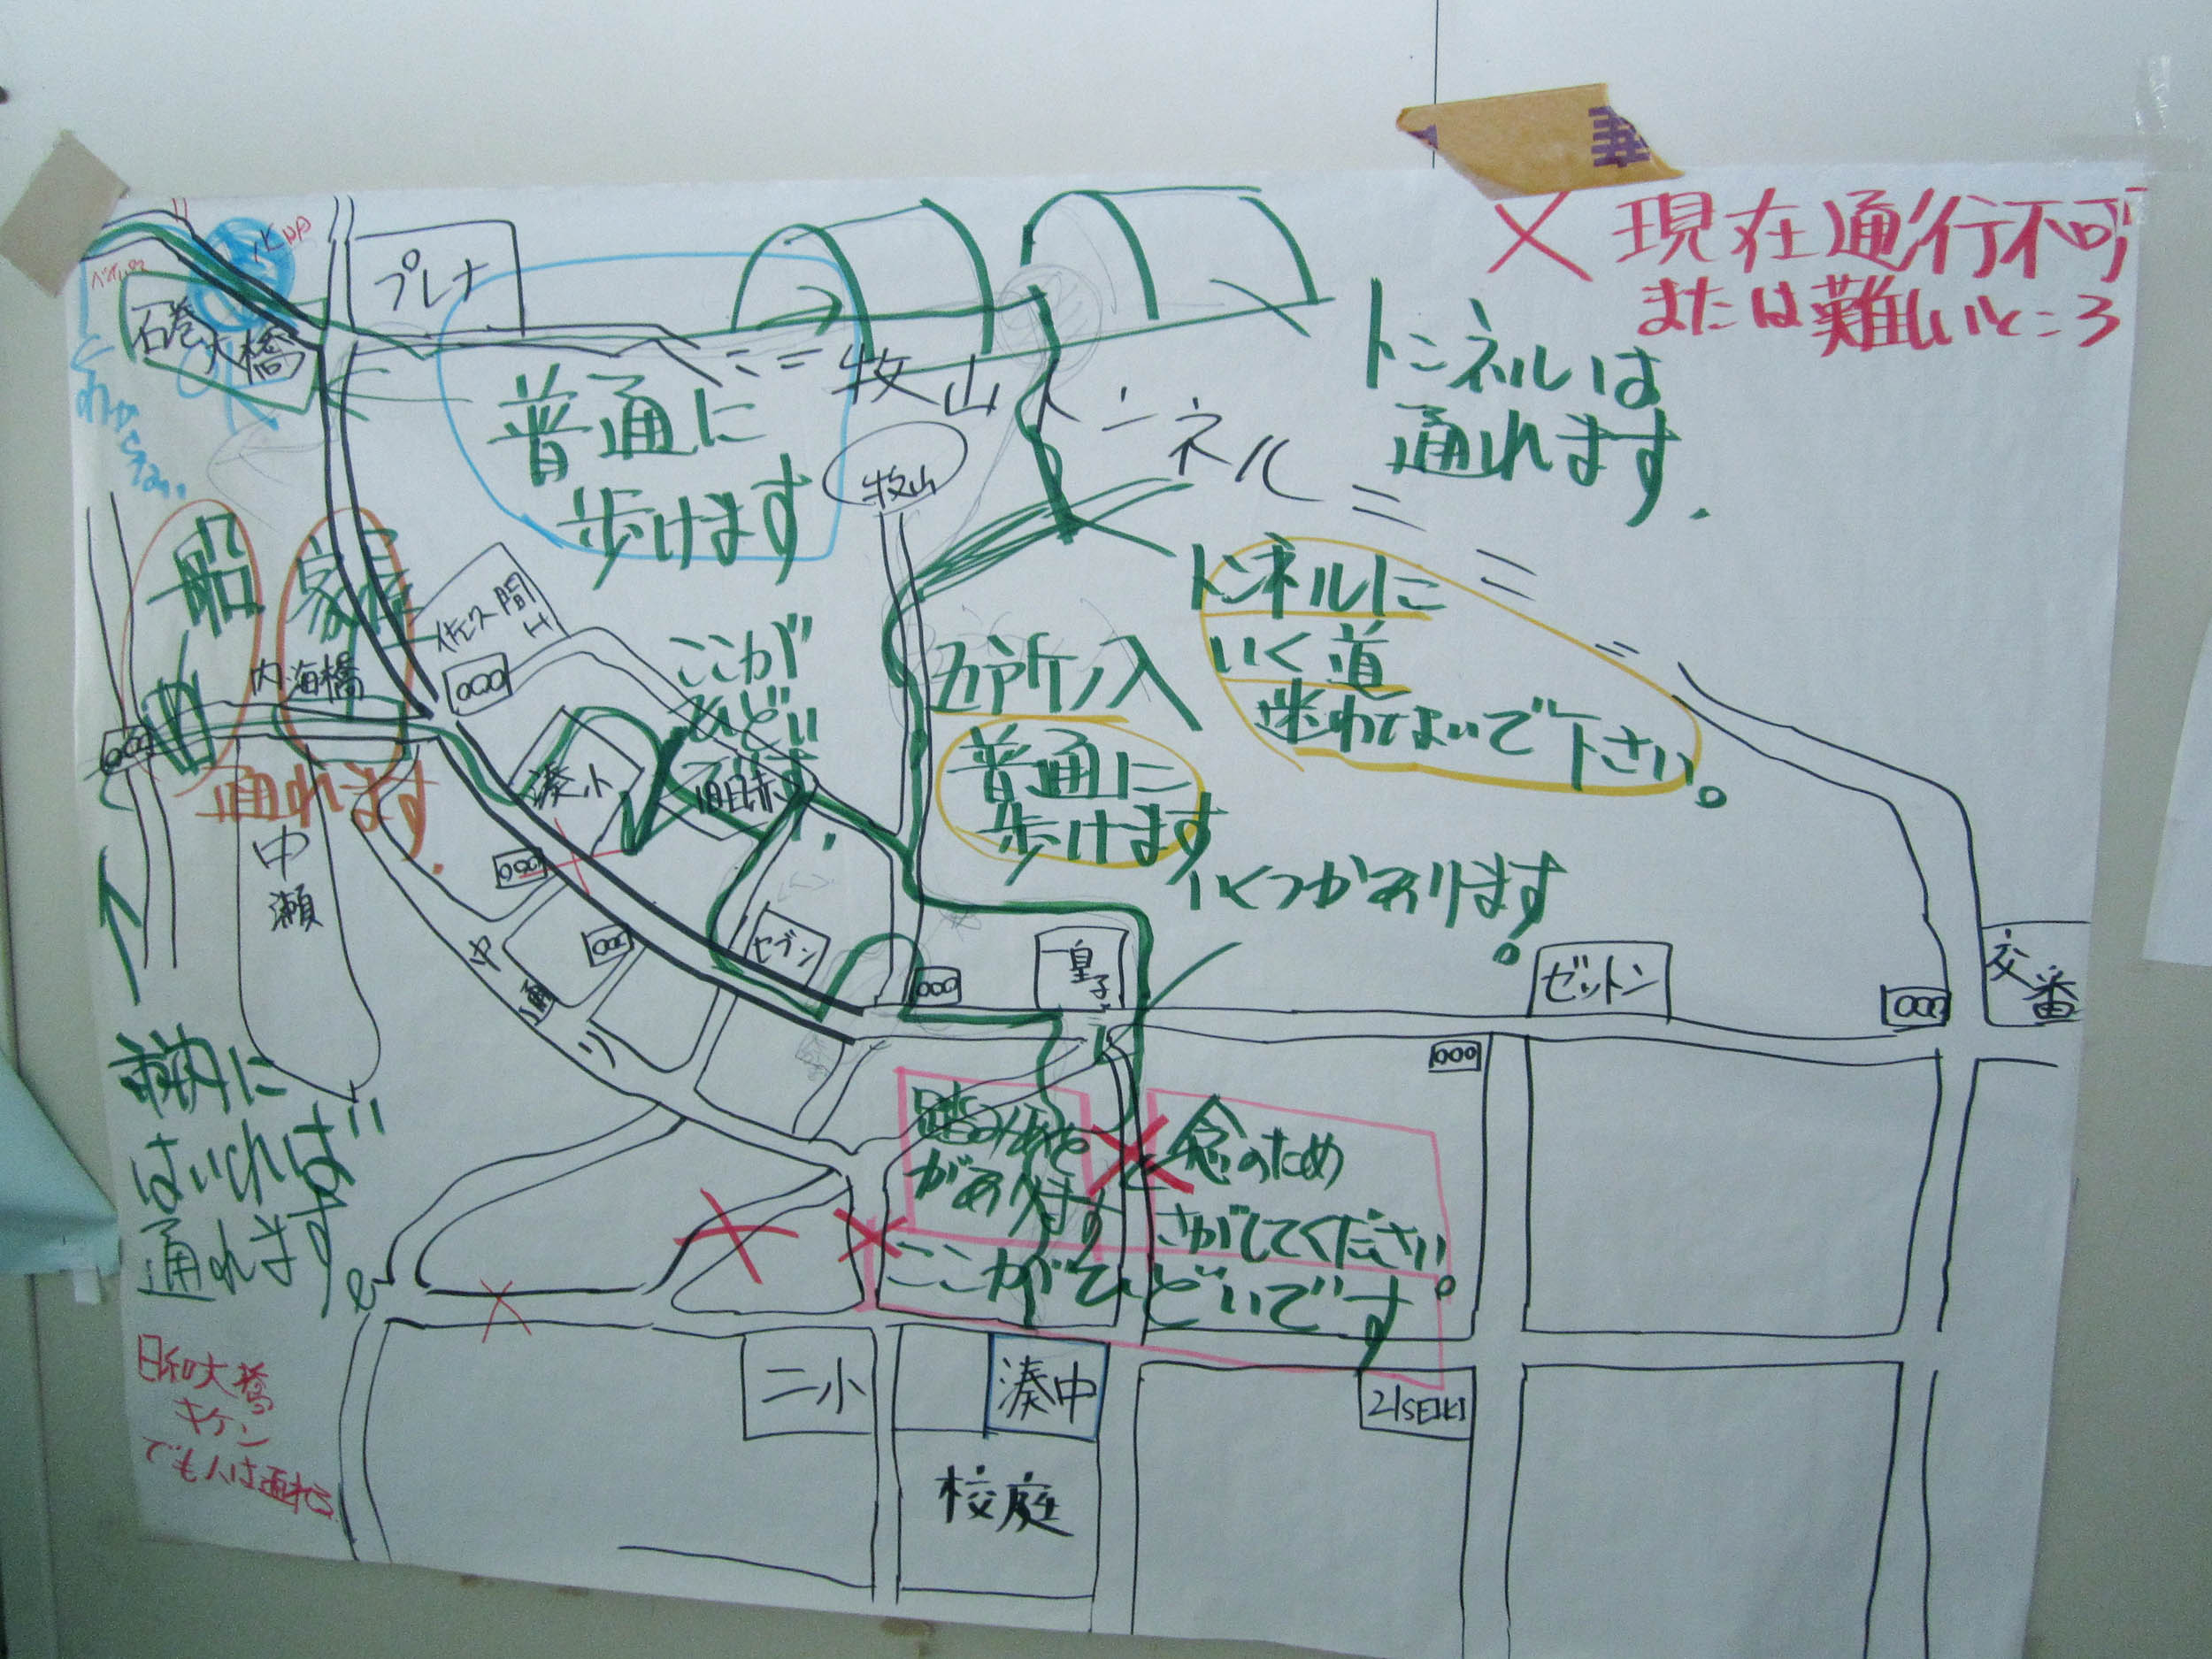 × 現在通行不可
または難しいところ
プレナ
石巻大橋
牧山トンネル
トンネルは
通れます.
普通に
歩けます
牧山
船
家屋
内海橋
通れます.
佐久間
ここが
ひどい
です.
五所ノ入
普通に
歩けます
いくつかあります。
トンネルに
いく道
迷わないで下さい。
湊小
中瀬
セブン
皇子
ゼットン
交番
中通り
市内に
はいれば
通れます。
踏み切り
があります
念のため
さがしてください。
ここがひどいです
日和大橋
キケン
でも人は通れる
二小
湊中
21SEIKI
校庭